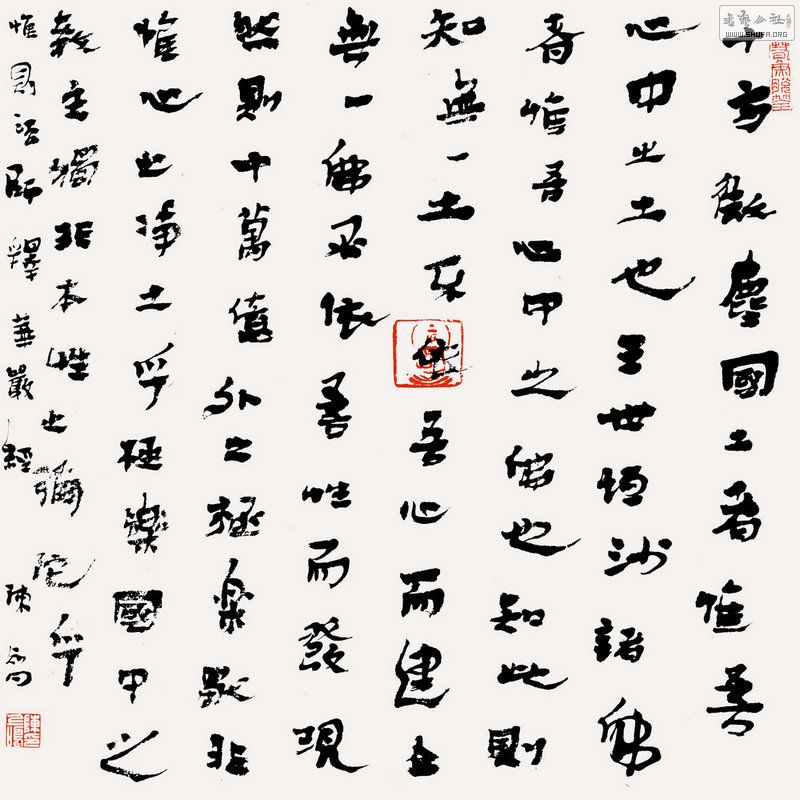 十方微塵國土者惟吾
心中之土也三世恒沙諸佛
者惟吾心中之佛也知此則
知無一土不依吾心而建立
無一佛不依吾性而發現
然則十萬億外之極樂獨非
惟心之淨土乎極樂國中之
教主獨非本性之彌陀乎
惟則法師釋華嚴經 陳
書藝公社
WWW.SHUFA.ORG